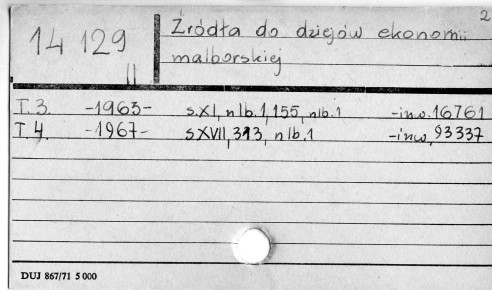 2
14 129
II
Źródła do dziejów ekonomii
malborskiej
T. 3. -1963- s. XI, nlb. 1, 155, nlb. 1 -inw. 16761
T. 4. -1967- s. XVII, 313, nlb. 1 -inw. 93337
DUJ 867/71 5 000